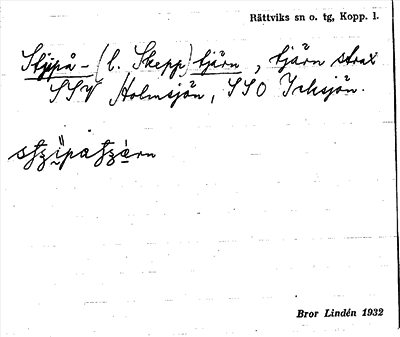 Rättviks sn o. tg, Kopp. l.
Stjipå-(l. Skepp)tjärn, tjärn strax
SSV Holmsjön, SSO Icksjön.
Bror Lindén 1932